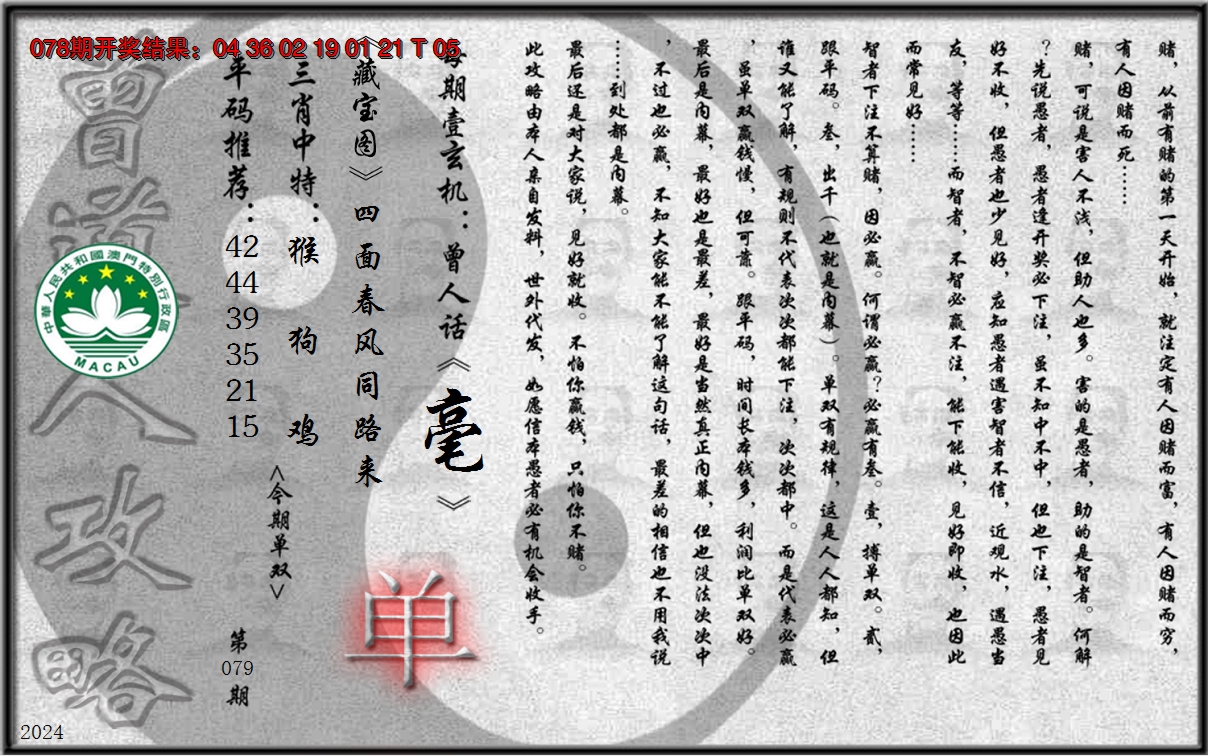 078期开奖结果：04 36 02 19 01 21 T 05
赌，从前有赌的第一天开始，就注定有人因赌而富，有人因赌而穷，
有人因赌而死……
赌，可说是害人不浅，但助人也多。害的是愚者，助的是智者。何解
？先说愚者，愚者逢开奖必下注，虽不知中不中，但也下注，愚者见
好不收，但愚者也少见好，应知愚者遇害智者不信，近观水，遇愚当
友，等等……而智者，不智必赢不注，能下能收，见好即收，也因此
而常见好……
智者下注不算赌，因必赢。何谓必赢？必赢有叁。壹，搏单双。贰，
跟平码。叁，出千（也就是内幕）。单双有规律，这是人人都知，但
谁又能了解，有规则不代表次次都能下注，次次都中。而是代表必赢
，虽单双赢钱慢，但可靠。跟平码，时间长本钱多，利润比单双好。
最后是内幕，最好也是最差，最好是当然真正内幕，但也没法次次中
，不过也必赢，不知大家能不能了解这句话，最差的相信也不用我说
……到处都是内幕。
最后还是对大家说，见好就收。不怕你赢钱，只怕你不赌。
此攻略由本人亲自发料，世外代发，如愿信本愚者必有机会收手。
每期壹玄机：曾人话《毫》
《藏宝图》四面春风同路来
单
三肖中特：猴 狗 鸡
<今期单双>
平码推荐：
42
44
39
35
21
15
第
079
期
曾道人攻略
中華人民共和國澳門特別行政區
MACAU
2024